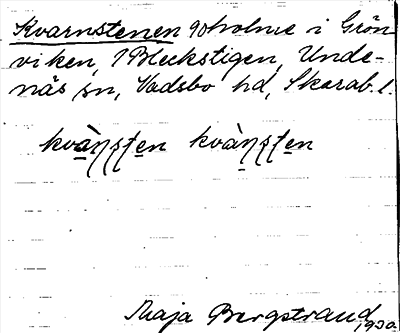 Kvarnstenen holme i Grön
viken, Bleckstigen, Unde-
näs sn, Vadsbo hd, Skarab. l.
kvàn̥ʂʈen kvàn̥ʂʈen
Maja Bergstrand